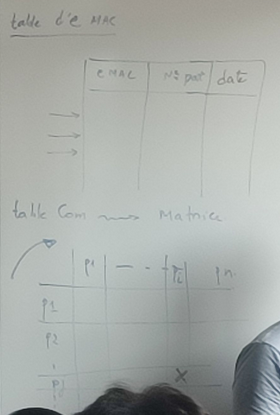 table d'@ MAC
@ MAC | N° port | date
table Com ⟿ Matrice
p1 — - - pi pn
p1
p2
pj x